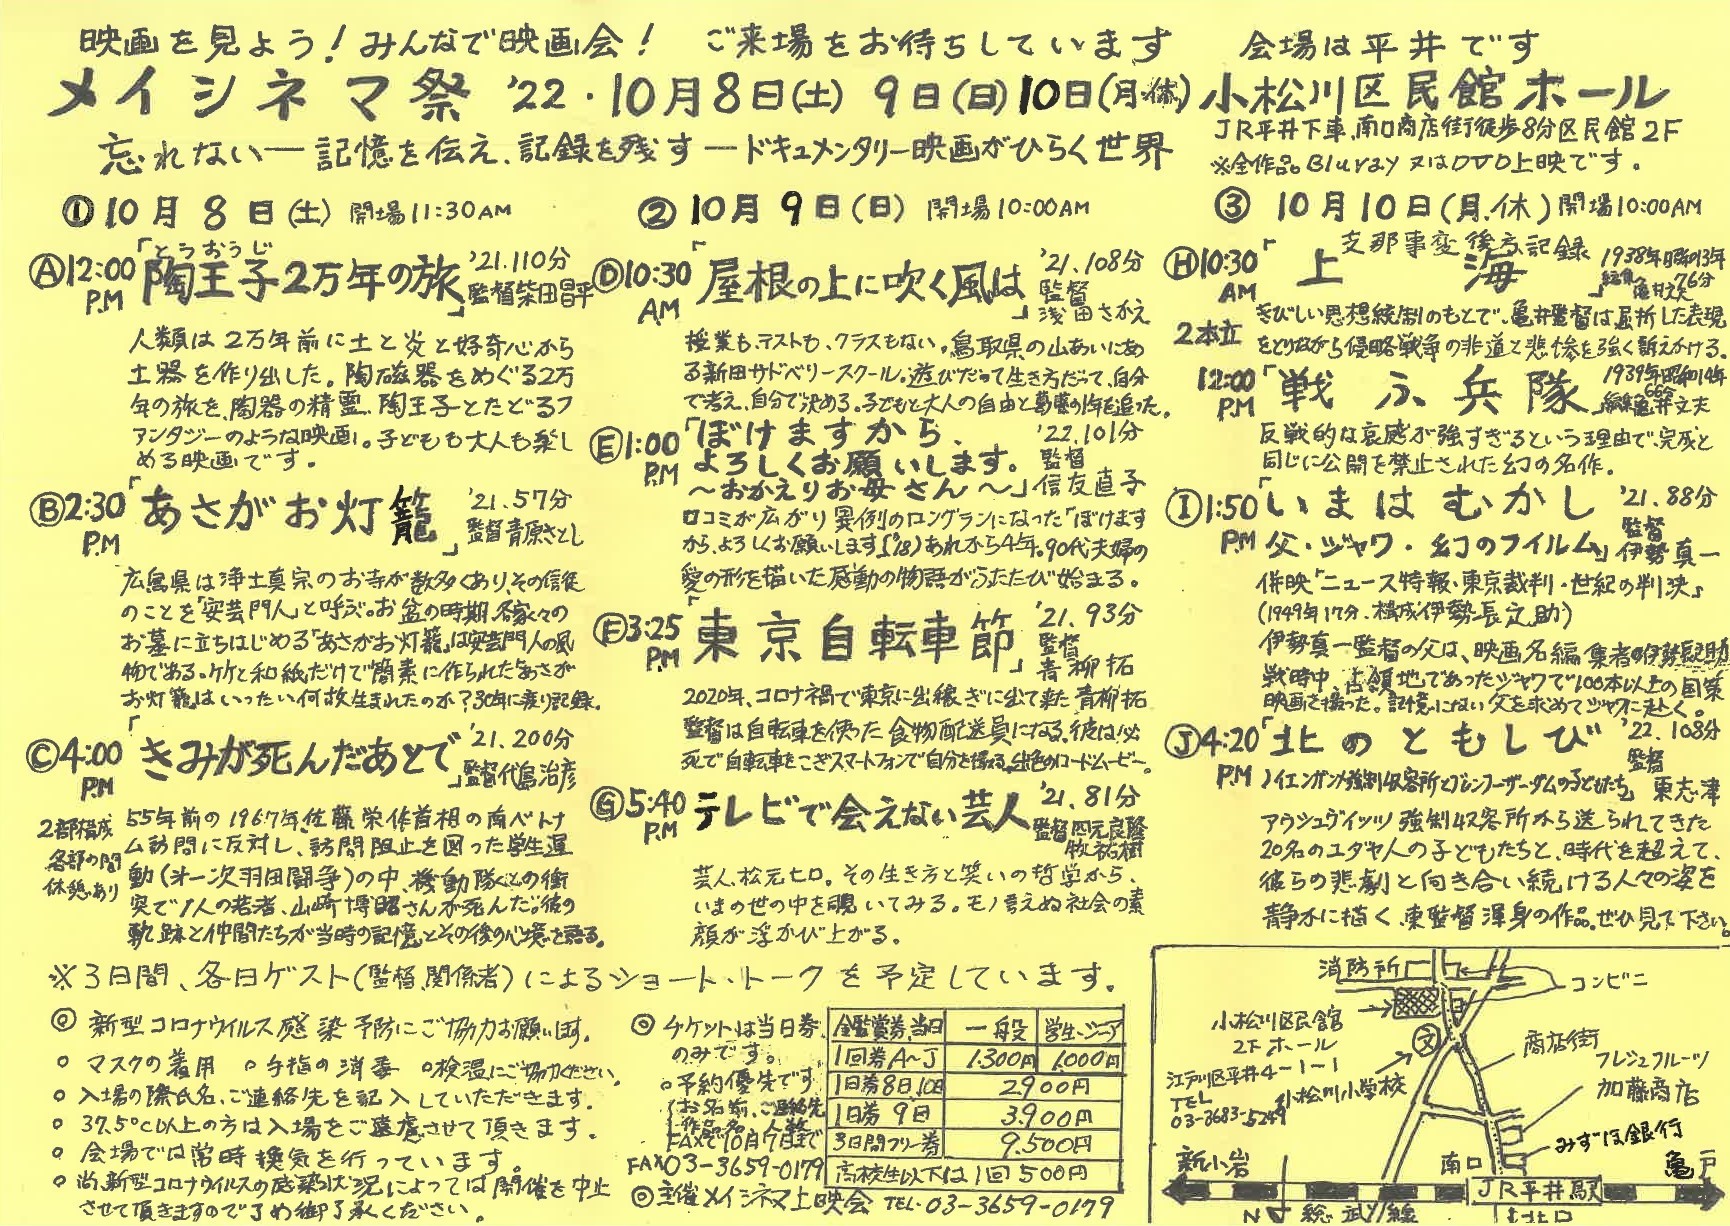 映画を見よう！みんなで映画会！ ご来場をお待ちしています 会場は平井です
メイシネマ祭 '22・10月8日(土) 9日(日) 10日(月・休) 小松川区民館ホール
JR平井下車、南口商店街徒歩8分区民館2F
忘れない―記憶を伝え、記録を残す―ドキュメンタリー映画がひらく世界
※全作品Blu ray又はDVD上映です。
① 10月8日(土) 開場11:30AM
Ⓐ12:00P.M 「陶王子2万年の旅」 '21.110分 監督柴田昌平
とうおうじ
人類は2万年前に土と炎と好奇心から
土器を作り出した。陶磁器をめぐる2万
年の旅を、陶器の精霊、陶王子とたどるフ
アンタジーのような映画。子どもも大人も楽し
める映画です。
Ⓑ2:30P.M 「あさがお灯籠」 '21.57分 監督青原さとし
広島県は浄土真宗のお寺が数多くあり、その信徒
のことを「安芸門人」と呼ぶ。お盆の時期、各家々の
お墓に立ちはじめる「あさがお灯籠」は安芸門人の風
物である。竹と和紙だけで簡素に作られた「あさが
お灯籠」はいったい何故生まれたのか？30年に渡り記録。
Ⓒ4:00P.M 「きみが死んだあとで」 '21.200分 監督代島治彦
2部構成
各部の間
休憩あり
55年前の1967年、佐藤栄作首相の南ベトナ
ム訪問に反対し、訪問阻止を図った学生運
動(第一次羽田闘争)の中、機動隊との衝
突で1人の若者、山﨑博昭さんが死んだ。彼の
軌跡と仲間たちが当時の記憶とその後の心境を語る。
② 10月9日(日) 開場10:00AM
Ⓓ10:30AM 「屋根の上に吹く風は」 '21.108分 監督 浅田さかえ
授業も、テストも、クラスもない。鳥取県の山あいにあ
る新田サドベリースクール。遊びだって生き方だって、自分
で考え、自分で決める。子どもと大人の自由と葛藤の1年を追った。
Ⓔ1:00P.M 「ぼけますから、
よろしくお願いします。
～おかえりお母さん～」 '22.101分 監督 信友直子
口コミが広がり異例のロングランになった「ぼけます
から、よろしくお願いします」('18)あれから4年。90代夫婦の
愛の形を描いた感動の物語がふたたび始まる。
Ⓕ3:25P.M 「東京自転車節」 '21.93分 監督 青柳拓
2020年、コロナ禍で東京に出稼ぎに出て来た青柳拓
監督は自転車を使った食物配送員になる。彼は必
死で自転車をこぎスマートフォンで自分を撮る。出色のロードムービー。
Ⓖ5:40P.M テレビで会えない芸人 '21.81分 監督 四元良隆 牧祐樹
芸人、松元ヒロ。その生き方と笑いの哲学から、
いまの世の中を覗いてみる。モノ言えぬ社会の素
顔が浮かび上がる。
③ 10月10日(月.休) 開場10:00AM
Ⓗ10:30AM 「上海」 支那事変後方記録 1938年昭和13年 76分 編集亀井文夫
2本立
きびしい思想統制のもとで、亀井監督は屈折した表現
をとりながら侵略戦争の非道と悲惨を強く訴えかける。
12:00P.M 「戦ふ兵隊」 1939年昭和14年 66分 編集亀井文夫
反戦的な哀感が強すぎるという理由で、完成と
同じに公開を禁止された幻の名作。
Ⓘ1:50P.M 「いまはむかし
父・ジャワ・幻のフイルム」 '21.88分 監督 伊勢真一
併映「ニュース特報・東京裁判・世紀の判決」
(1949年17分.構成伊勢長之助)
伊勢真一監督の父は、映画名編集者の伊勢長之助
戦時中、占領地であったジャワで100本以上の国策
映画を撮った。記憶にない父を求めてジャワに赴く。
Ⓙ4:20P.M 「北のともしび '22.108分 監督 東志津
ノイエンガンメ強制収容所とブレンフーザーダムの子どもたち」
アウシュヴィッツ強制収容所から送られてきた
20名のユダヤ人の子どもたちと、時代を超えて、
彼らの悲劇と向き合い続ける人々の姿を
静かに描く、東監督渾身の作品。ぜひ見て下さい。
※3日間、各日ゲスト(監督、関係者)によるショート・トークを予定しています。
◎ 新型コロナウイルス感染予防にご協力お願いします。
○ マスクの着用 ○手指の消毒 ○検温にご協力ください。
○ 入場の際氏名、ご連絡先を記入していただきます。
○ 37.5℃以上の方は入場をご遠慮させて頂きます。
○ 会場では常時換気を行っています。
○ 尚、新型コロナウイルスの感染状況によっては開催を中止
させて頂きますので予め御了承ください。
◎ チケットは当日券
のみです。
○予約優先です
(お名前、ご連絡先
作品名、人数
FAXで10月7日まで
FAX03-3659-0179
◎主催メイシネマ上映会 TEL.03-3659-0179
全鑑賞券、当日 一般 学生、シニア
1回券A～J 1.300円 1.000円
1日券8日.10日 2.900円
1日券 9日 3.900円
3日間フリー券 9.500円
高校生以下は1回500円
消防所
コンビニ
小松川区民館
2F、ホール
江戸川区平井4-1-1
TEL
03-3683-5249
文
小松川小学校
商店街
フレッシュフルーツ
加藤商店
みずほ銀行
新小岩
南口
亀戸
JR平井駅
N
総武線
北口